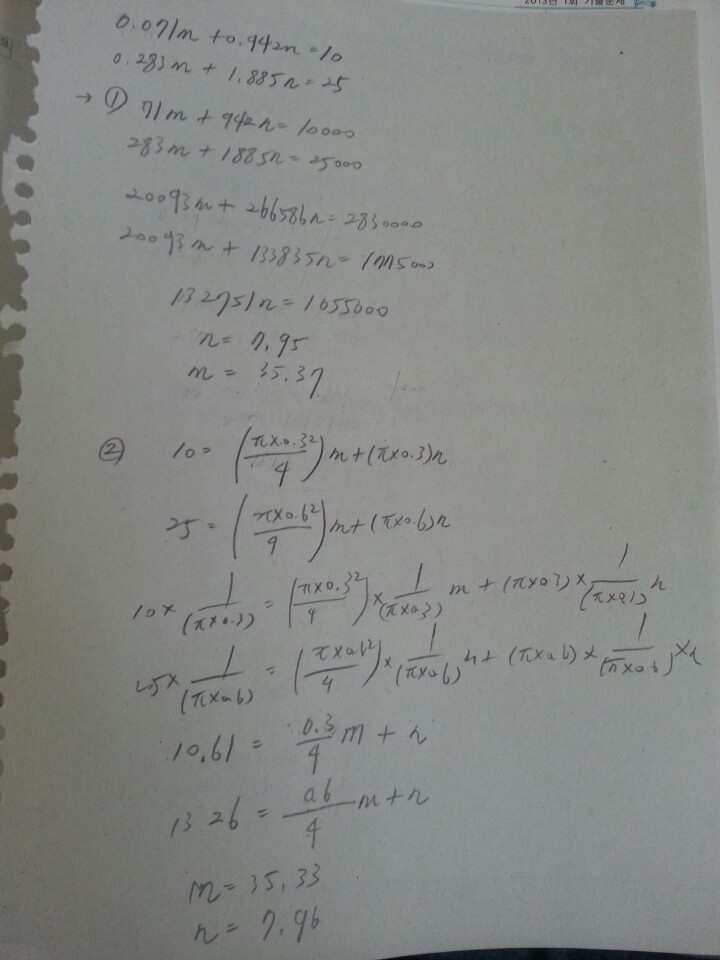 2013년 1회 기출문제
0.071m + 0.942n = 10
0.283m + 1.885n = 25
→ ① 71m + 942n = 10000
283m + 1885n = 25000
20093m + 266586n = 2830000
20093m + 133835n = 1775000
132751n = 1055000
n = 7.95
m = 35.37
② 10 = (π×0.3²/4)m + (π×0.3)n
25 = (π×0.6²/4)m + (π×0.6)n
10× 1/(π×0.3) = (π×0.3²/4)× 1/(π×0.3) m + (π×0.3)× 1/(π×0.3) n
25× 1/(π×0.6) = (π×0.6²/4)× 1/(π×0.6) m + (π×0.6)× 1/(π×0.6) ×n
10.61 = 0.3/4 m + n
13.26 = 0.6/4 m + n
m = 35.33
n = 7.96